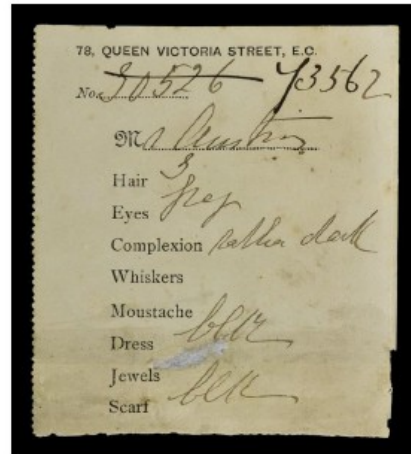 78, QUEEN VICTORIA STREET, E.C.
No. 30526 43562
Mr Austin
Hair
Eyes Grey
Complexion rather dark
Whiskers
Moustache
Dress blk
Jewels
Scarf blk